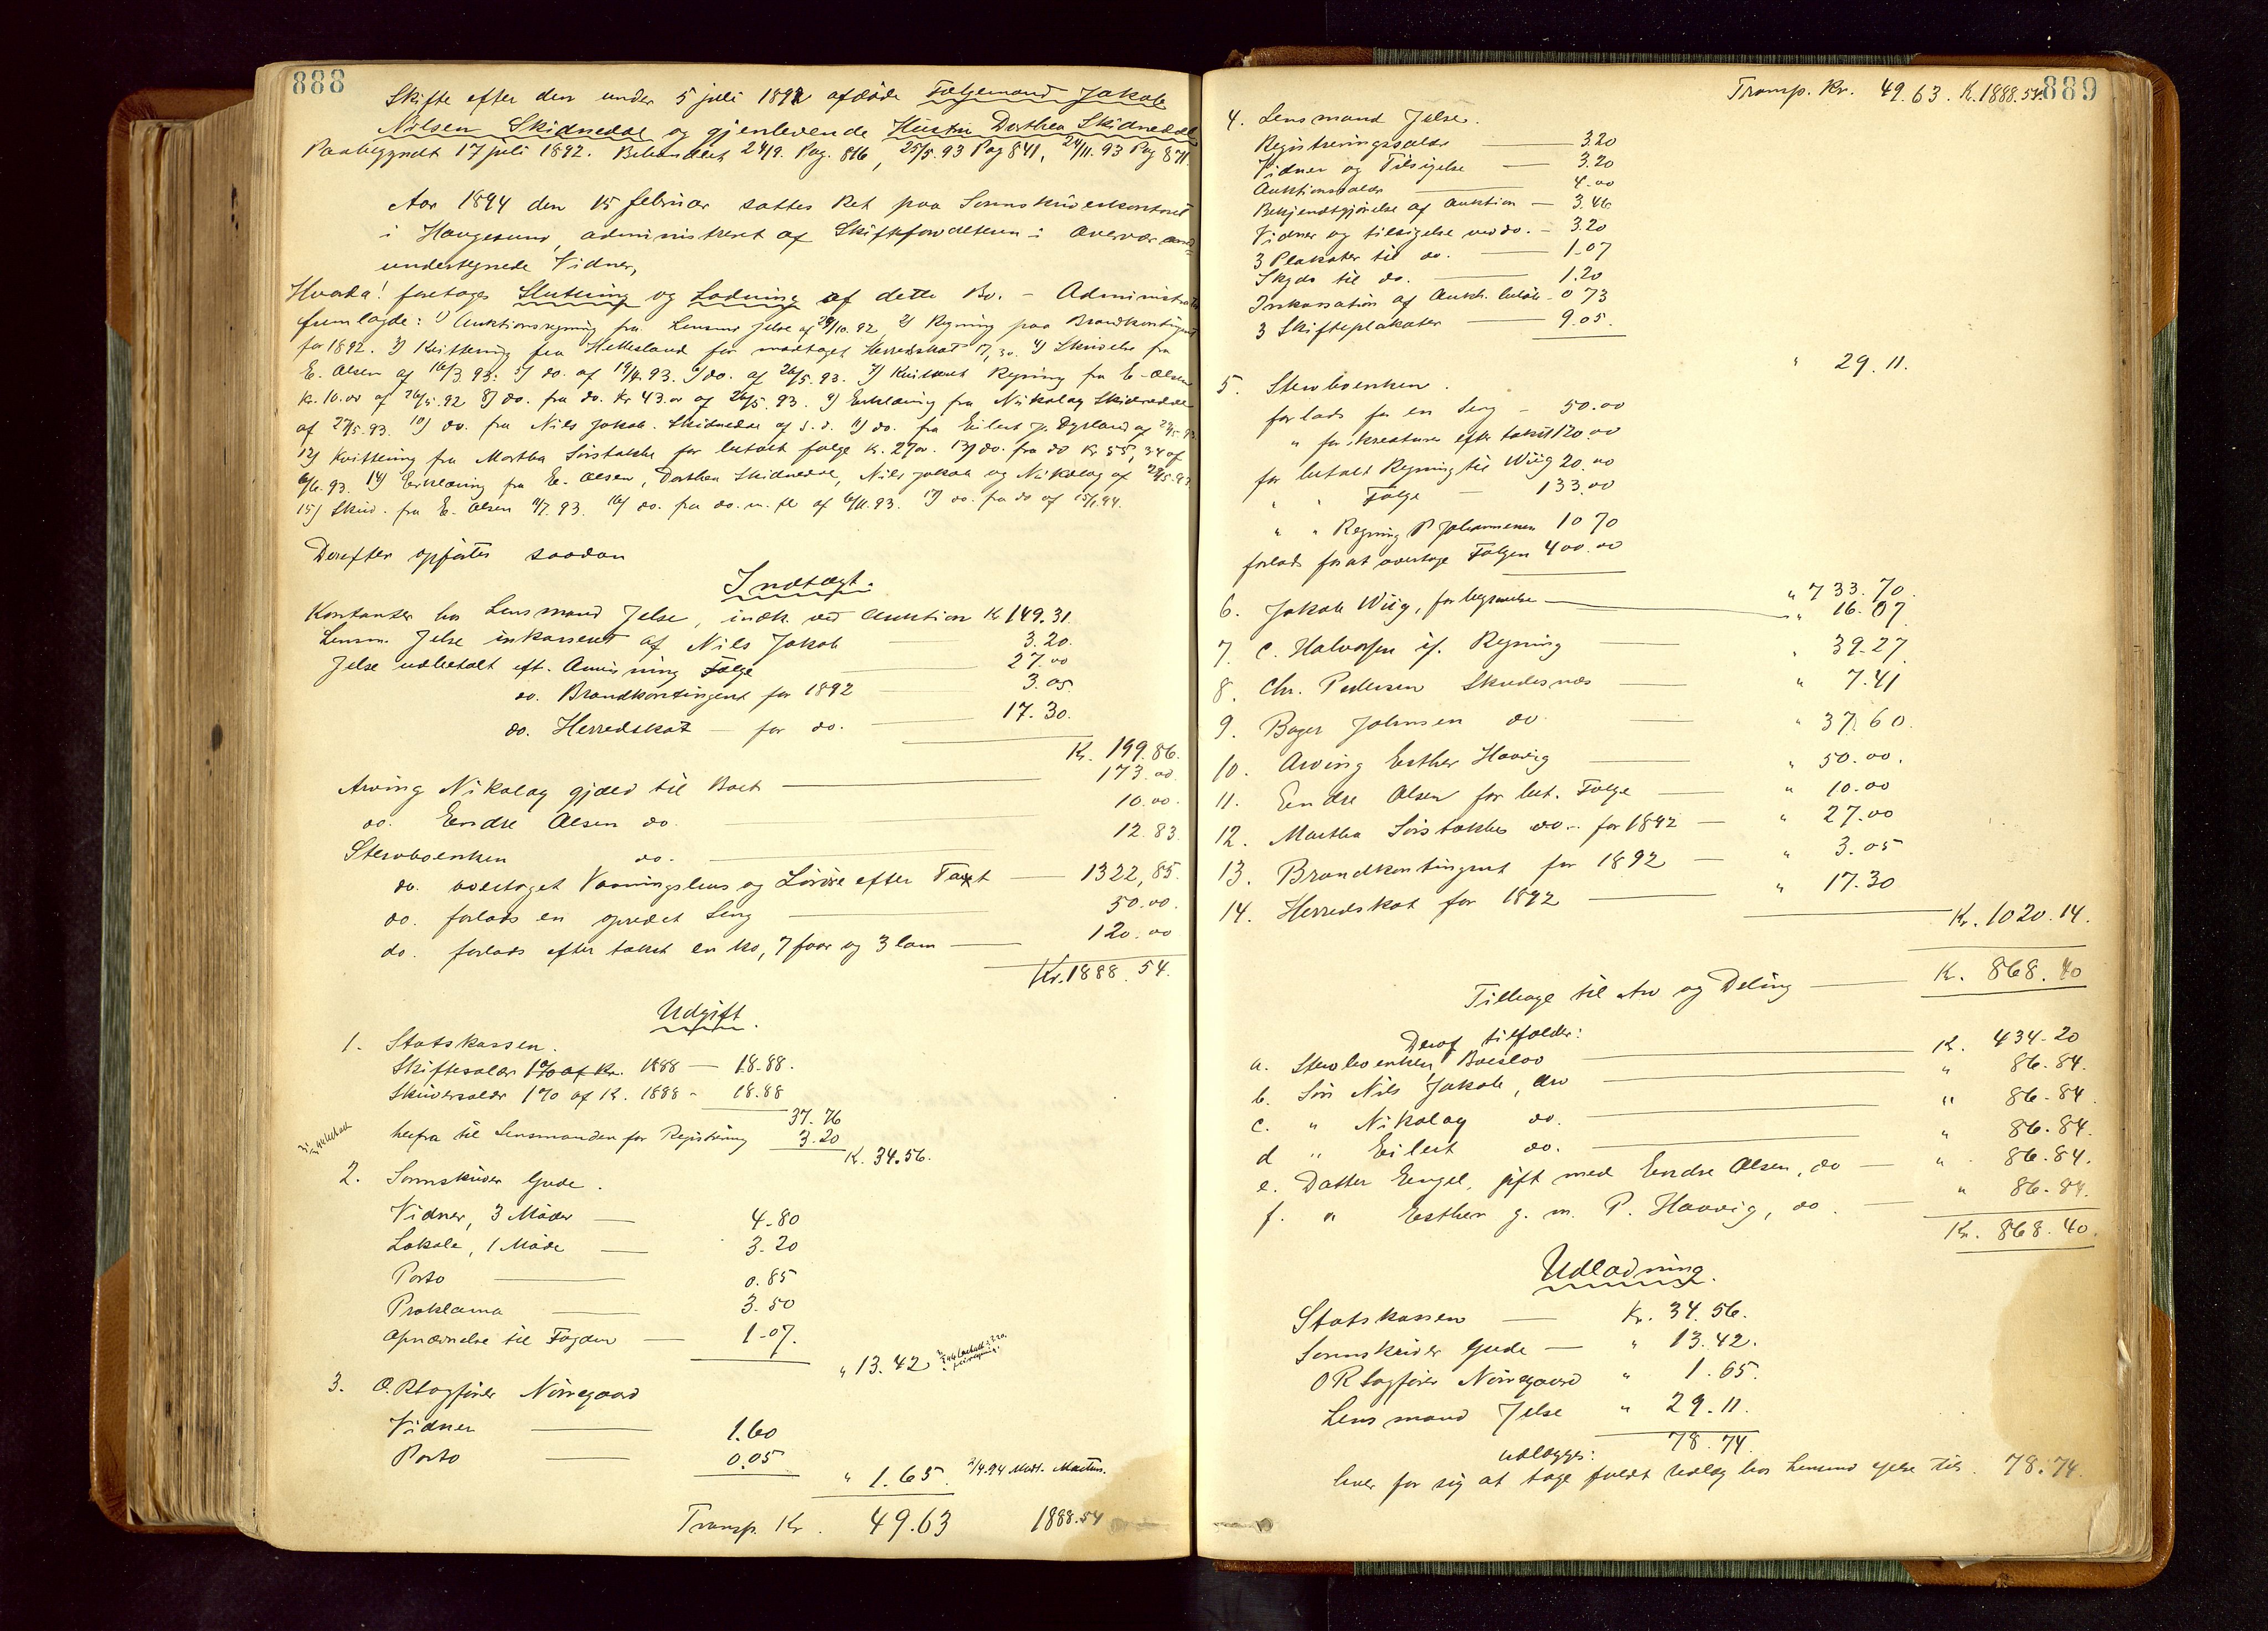 888
Skifte efter den under 5 juli 1892 afdøde Følgemand Jakob
Nilsen Skidnedal og gjenlevende Hustru Dorthea Skidnedal
Paabegyndt 17 juli 1892. Behandlet 24/9. Pag. 816, 25/5.93 Pag 841, 24/11.93 Pag 871
Aar 1894 den 15 februar sattes Ret paa Sorenskriverkontoret
i Haugesund, administreret af Skifteforvalteren i Overvær
undertegnede Vidner,
Hvorda! foretoges Slutning og Lodning af dette Bo. - Administrator
fremlagde: 1) Auktionsregning fra Lensmd Jelse af 29/10.92 2) Regning paa Brandkontingent
for 1892. 3) Kvittering fra Hettesland for modtaget Herredskat 17,30. 4) Skrivelse fra
E. Olsen af 16/3.93: 5) do. af 19/4.93. 6) do. af 26/5.93. 7) Kvitteret Regning fra E. Olsen
Kr. 10.00 af 26/5.92 8) do. fra do. Kr 43.00 af 26/5.93. 9) Erklæring fra Nikolay Skidnedal
af 27/5.93. 10) do. fra Nils Jakob. Skidnedal af s.d. 11) do. fra Eilert J. Dysland af
12) Kvittering fra Martha Sørstokke for betalt følge Kr. 27.00. 13) do. fra do Kr 55,34 af
6/11.93. 14) Erklæring fra E. Olsen, Dorthea Skidnedal, Nils Jakob og Nikolay af
15) Skriv. fra E. Olsen 11/7.93. 16) do. fra do. m. fl. af 6/11.93. 17) do. fra do af 15/1.94.
Derefter opførtes saadan
Indtægt.
Kontanter hos Lensmand Jelse, indk. ved Auktion Kr 149.31.
Lensm. Jelse inkasseret af Nils Jakob 3.20.
Jelse udbetalt eft. Anvisning Følge 27.00
do. Brandkontingent for 1892 3.05.
do. Herredskat — for do. 17.30.
Kr. 199.86.
Arving Nikolay gjæld til Boet 173.00.
do. Endre Olsen do. 10.00.
Stervboenken do. 12.83.
do. overtaget Vaaningshus og Løvdre efter Taxt 1322,85.
do. forlods en opredet Seng 50.00.
do. forlods efter takst en ko, 7 faar og 3 lam 120.00
Kr. 1888.54.
Udgift.
1. Statskassen.
Skiftesalær 1% af Kr. 1888 — 18.88.
Skriversalær 1% af K. 1888 - 18.88
37.76
herfra til Lensmanden for Registrering 3.20
K. 34.56.
2. Sorenskriver Gude.
Vidner, 3 Møder 4.80
Lokale, 1 Møde 3.20
Porto 0.85
Proklama 3.50
Opnævnelse til Fogden 1.07.
" 13.42
3. O.R. Sagfører Nørregaard
Vidner 1.60
Porto 0.05
" 1.65. 2/4.94
Transp. Kr. 49.63 1888.54
889
Transp. Kr. 49.63. K. 1888.54.
4. Lensmand Jelse.
Registreringssalær 3.20
Vidner og Tilsigelse 3.20
Auktionssalær 4.00
Bekjendtgjørelse af Auktion 3.46
Vidner og tilsigelse ved do. 3.20
3 Plakater til do. 1.07
Skyds til do. 1.20
Inkassation af Aukt. beløb 0.73
3 Skifteplakater 9.05.
" 29.11.
5. Stervboenken.
forlods for en Seng - 50.00
" for kreaturer efter takst 120.00
for betalt Regning til Wiig 20.00
" " Følge 133.00
" " Regning P Johannesen 10 70
forlods for at overtage Følgen 400.00
" 733.70.
6. Jakob Wiig, for begravelse " 16.07
7. C. Halvorsen if. Regning " 39.27
8. Chr. Pedersen Skudesnæs " 7.41
9. Bager Johnsen do. " 37.60.
10. Arving Esther Haavig " 50.00.
11. Endre Olsen for bet. Følge " 10.00
12. Martha Sørstokke do. for 1892 " 27.00
13. Brandkontingent for 1892 " 3.05
14. Herredskat for 1892 " 17.30
Kr. 1020.14.
Tilbage til Arv og Deling K. 868.40
Deraf tilfalder:
a. Stervboenken Boeslod K. 434.20
b. Søn Nils Jakob, Arv " 86.84.
c. " Nikolay do. " 86.84.
d " Eilert do. " 86.84.
e. Datter Engel, gift med Endre Olsen, do " 86.84.
f. " Esther g. m. P. Haavig, do. " 86.84.
Kr. 868.40.
Udlodning.
Statskassen Kr. 34.56.
Sorenskriver Gude " 13.42.
OR Sagfører Nørregaard " 1.65.
Lensmand Jelse " 29.11.
78.74.
udlægges:
hver for sig at tage fuldt Udlæg hos Lensmd Jelse til 78.74.